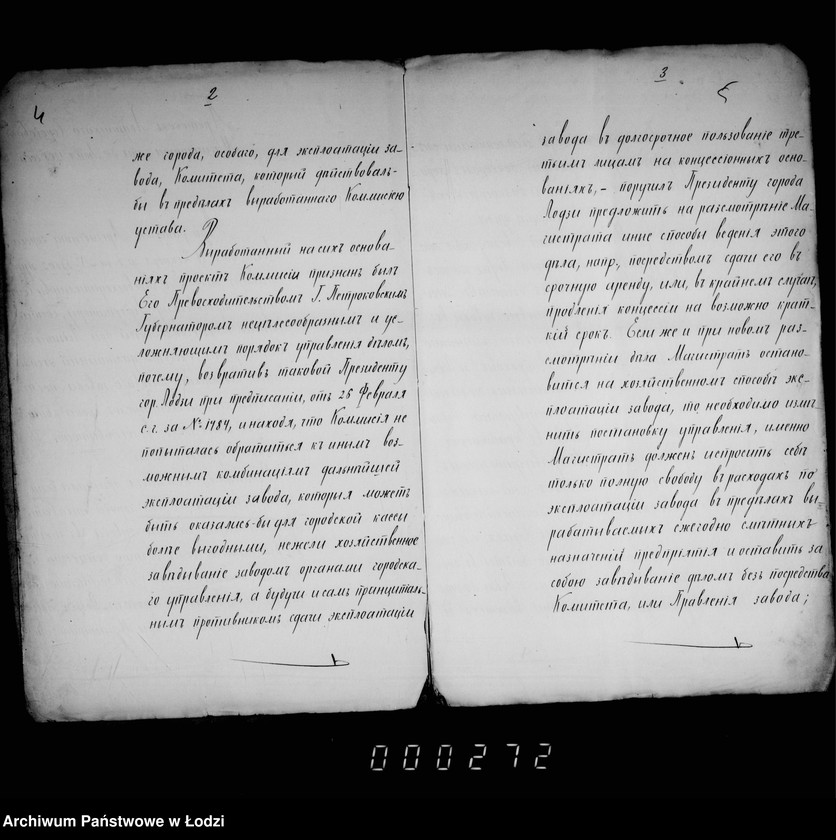 4
2
же города, особаго, для эксплоатаціи за-
вода, Комитета, который дѣйствовалъ-
бы въ предѣлахъ выработаннаго Коммисіею
устава.
Выработанный на сихъ основа-
ніяхъ проектъ Коммисіи признанъ былъ
Его Превосходительствомъ Г. Петроковскимъ
Губернаторомъ нецѣлесообразнымъ и ус-
ложняющимъ порядокъ управленія дѣломъ,
почему, возвративъ таковой Президенту
гор. Лодзи при предписаніи, отъ 25 Февраля
с. г. за № 1784, и находя, что Коммисія не
попыталась обратиться къ инымъ воз-
можнымъ комбинаціямъ дальнѣйшей
эксплоатаціи завода, которыя можетъ
быть оказались-бы для городской кассы
болѣе выгодными, нежели хозяйственное
завѣдываніе заводомъ органами городска-
го управленія, а будучи и самъ принципіаль-
нымъ противникомъ сдачи эксплоатаціи
3
5
завода въ долгосрочное пользованіе тре-
тьимъ лицамъ на концессіонныхъ осно-
ваніяхъ, – поручилъ Президенту города
Лодзи предложить на разсмотрѣніе Ма-
гистрата иные способы веденія этого
дѣла, напр., посредствомъ сдачи его въ
срочную аренду, или, въ крайнемъ случаѣ,
продленія концессіи на возможно крат-
кій срокъ. Если же и при новомъ раз-
смотрѣніи дѣла Магистратъ остано-
вится на хозяйственномъ способѣ экс-
плоатаціи завода, то необходимо измѣ-
нить постановку управленія, именно
Магистратъ долженъ испросить себѣ
только полную свободу въ расходахъ по
эксплоатаціи завода въ предѣлахъ вы-
рабатываемыхъ ежегодно смѣтныхъ
назначеній предпріятія и оставить за
собою завѣдываніе дѣломъ безъ посредства
Комитета, или Правленія завода;
000272
Archiwum Państwowe w Łodzi